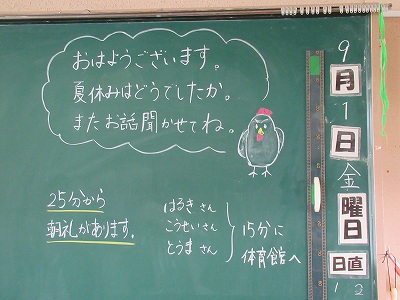 おはようございます。
夏休みはどうでしたか。
またお話聞かせてね。
25分から
朝礼があります。
はるき さん
こうせい さん
とうま さん
15分に
体育館へ
9
月
1
日
金
曜
日
日直
1 2